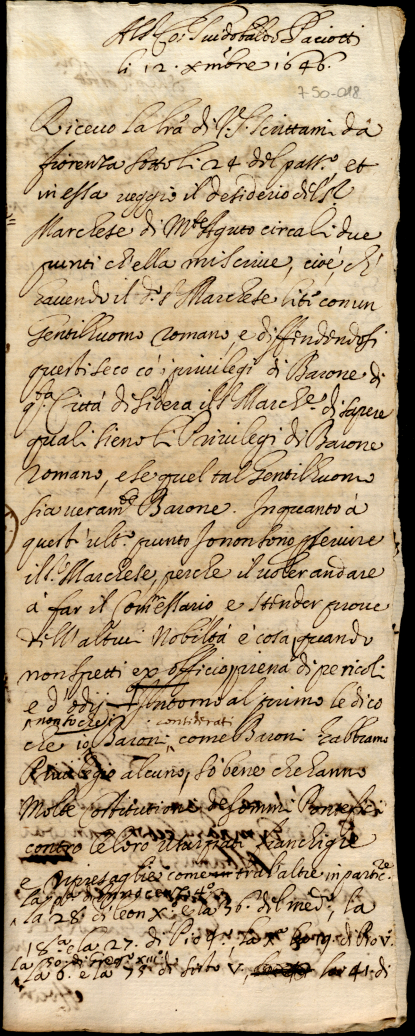 Al S. Co: Guidobaldo Paciotti
li 12. Xmbre 1646.
750-018
Ricevo la lrã di V.S. scrittami da
fiorenza sotto li 24 del pass.º et
in essa veggio il desiderio del S.r
Marchese di M.te Aguto circa li due
punti ch'ella mi scrive, cioè, ch'
havendo il d.º S.r Marchese lite con un
Gentilhuomo romano, e diffendendosi
questi seco co' i privilegi di Barone di
q.sta Città desidera il S.r March.e di sapere
quali sieno li Privilegi di Barone
romano, e se quel tal Gentilhuomo
sia veram.te Barone. In quanto à
questi ult.º punto Io non sono p servire
il S.r Marchese, perche il voler andare
à far il Commessario e stender prove
dell'altrui Nobiltà è cosa, quando
non spetti ex officio, piena di pericoli
e d'odij. Intorno al primo le dico
che io non so che i Baroni, considerati come Baroni habbiamo
Privilegio alcuno, so bene che hanno
Molte Costitutioni de sommi Pontefici
contro le loro usurpate franchigie
e Ripresaglie come tra l'altre in partic.re
la p.a d'Innocenz. 4.º
la 28. di leon X. e la 36. del med.º, la
18.a e la 27. di Pio la X.
la 30. di Greg.º XIII.
la 6. e la 75. di Sisto V, la 41. di